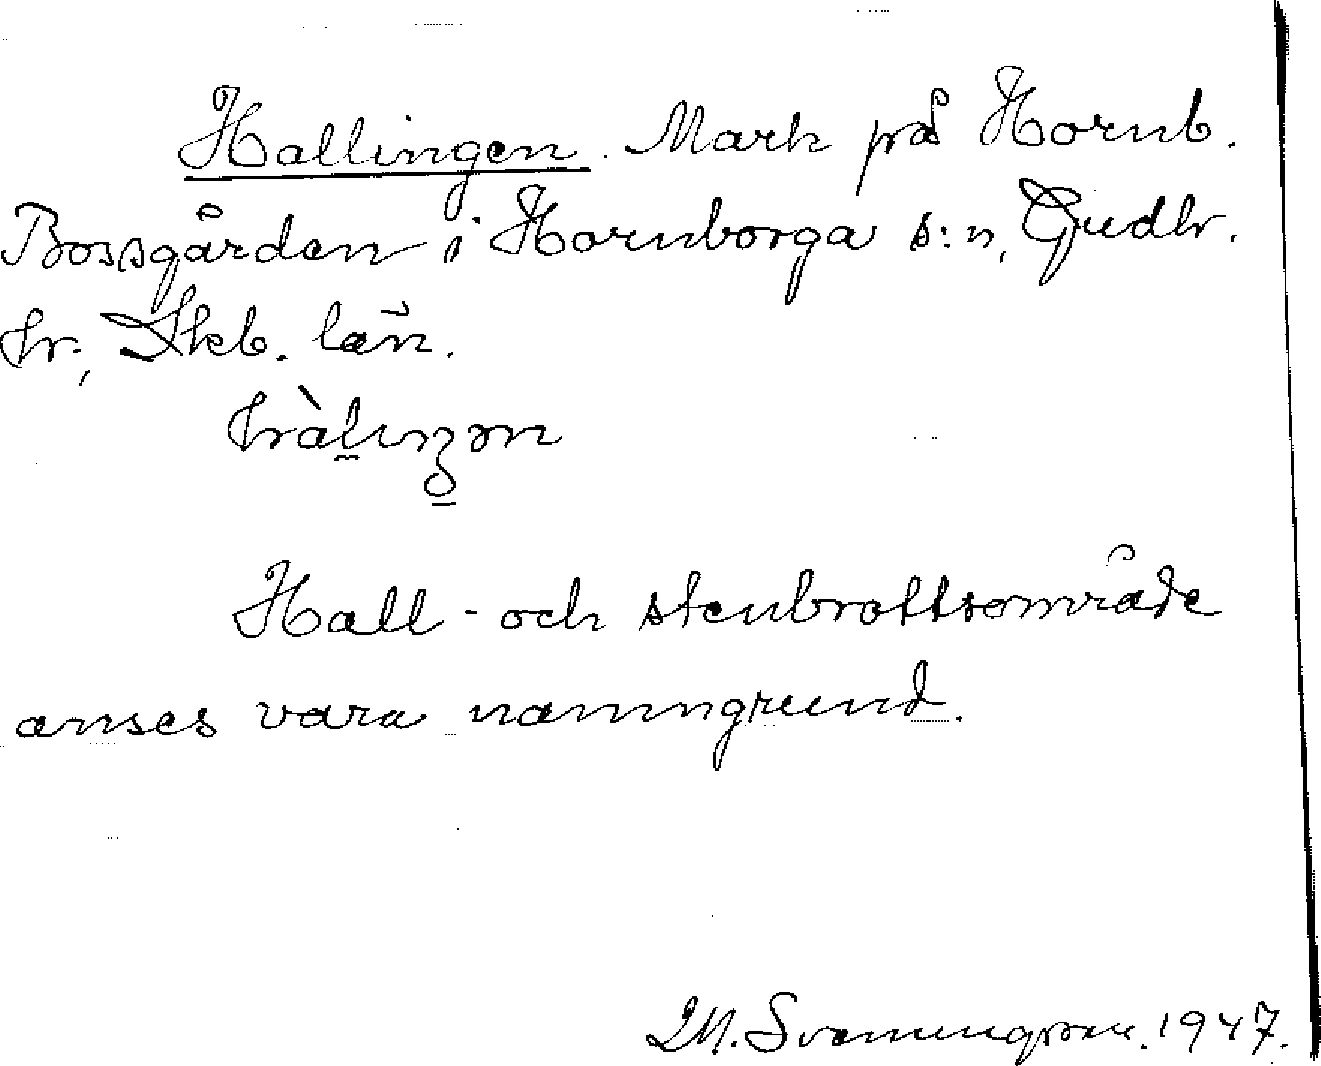 Hallingen. Mark på Hornb.
Bossgården i Hornborga s:n, Gudh.
hr, Skb. län.
hàlıŋən
Hall- och stenbrottsområde
anses vara namngrund.
M. Svenungsson. 1947.